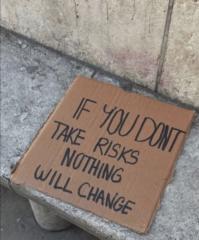 IF YOU DONT
TAKE RISKS
NOTHING
WILL CHANGE